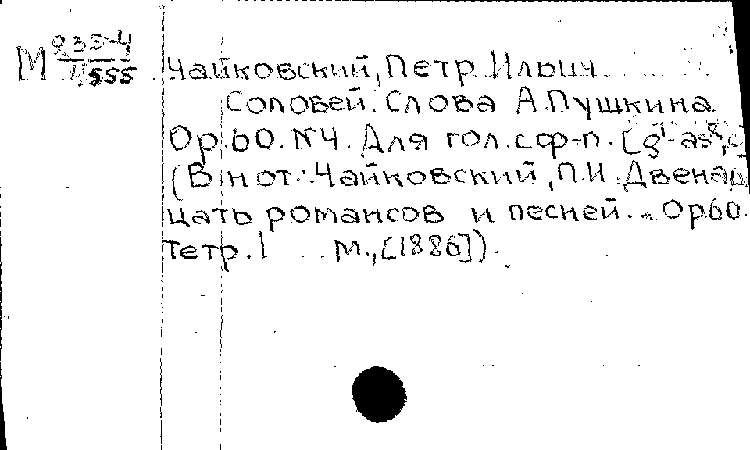 М 935-4
Чайковский, Петр Ильич
Соловей. Слова А.Пушкина
Op.60. №4. Для гол. с ф-п. [g¹-as²,
(В нот.: Чайковский, П.И. Двенад
цать романсов и песней... Op.60.
Тетр.1 М.,[1886]).